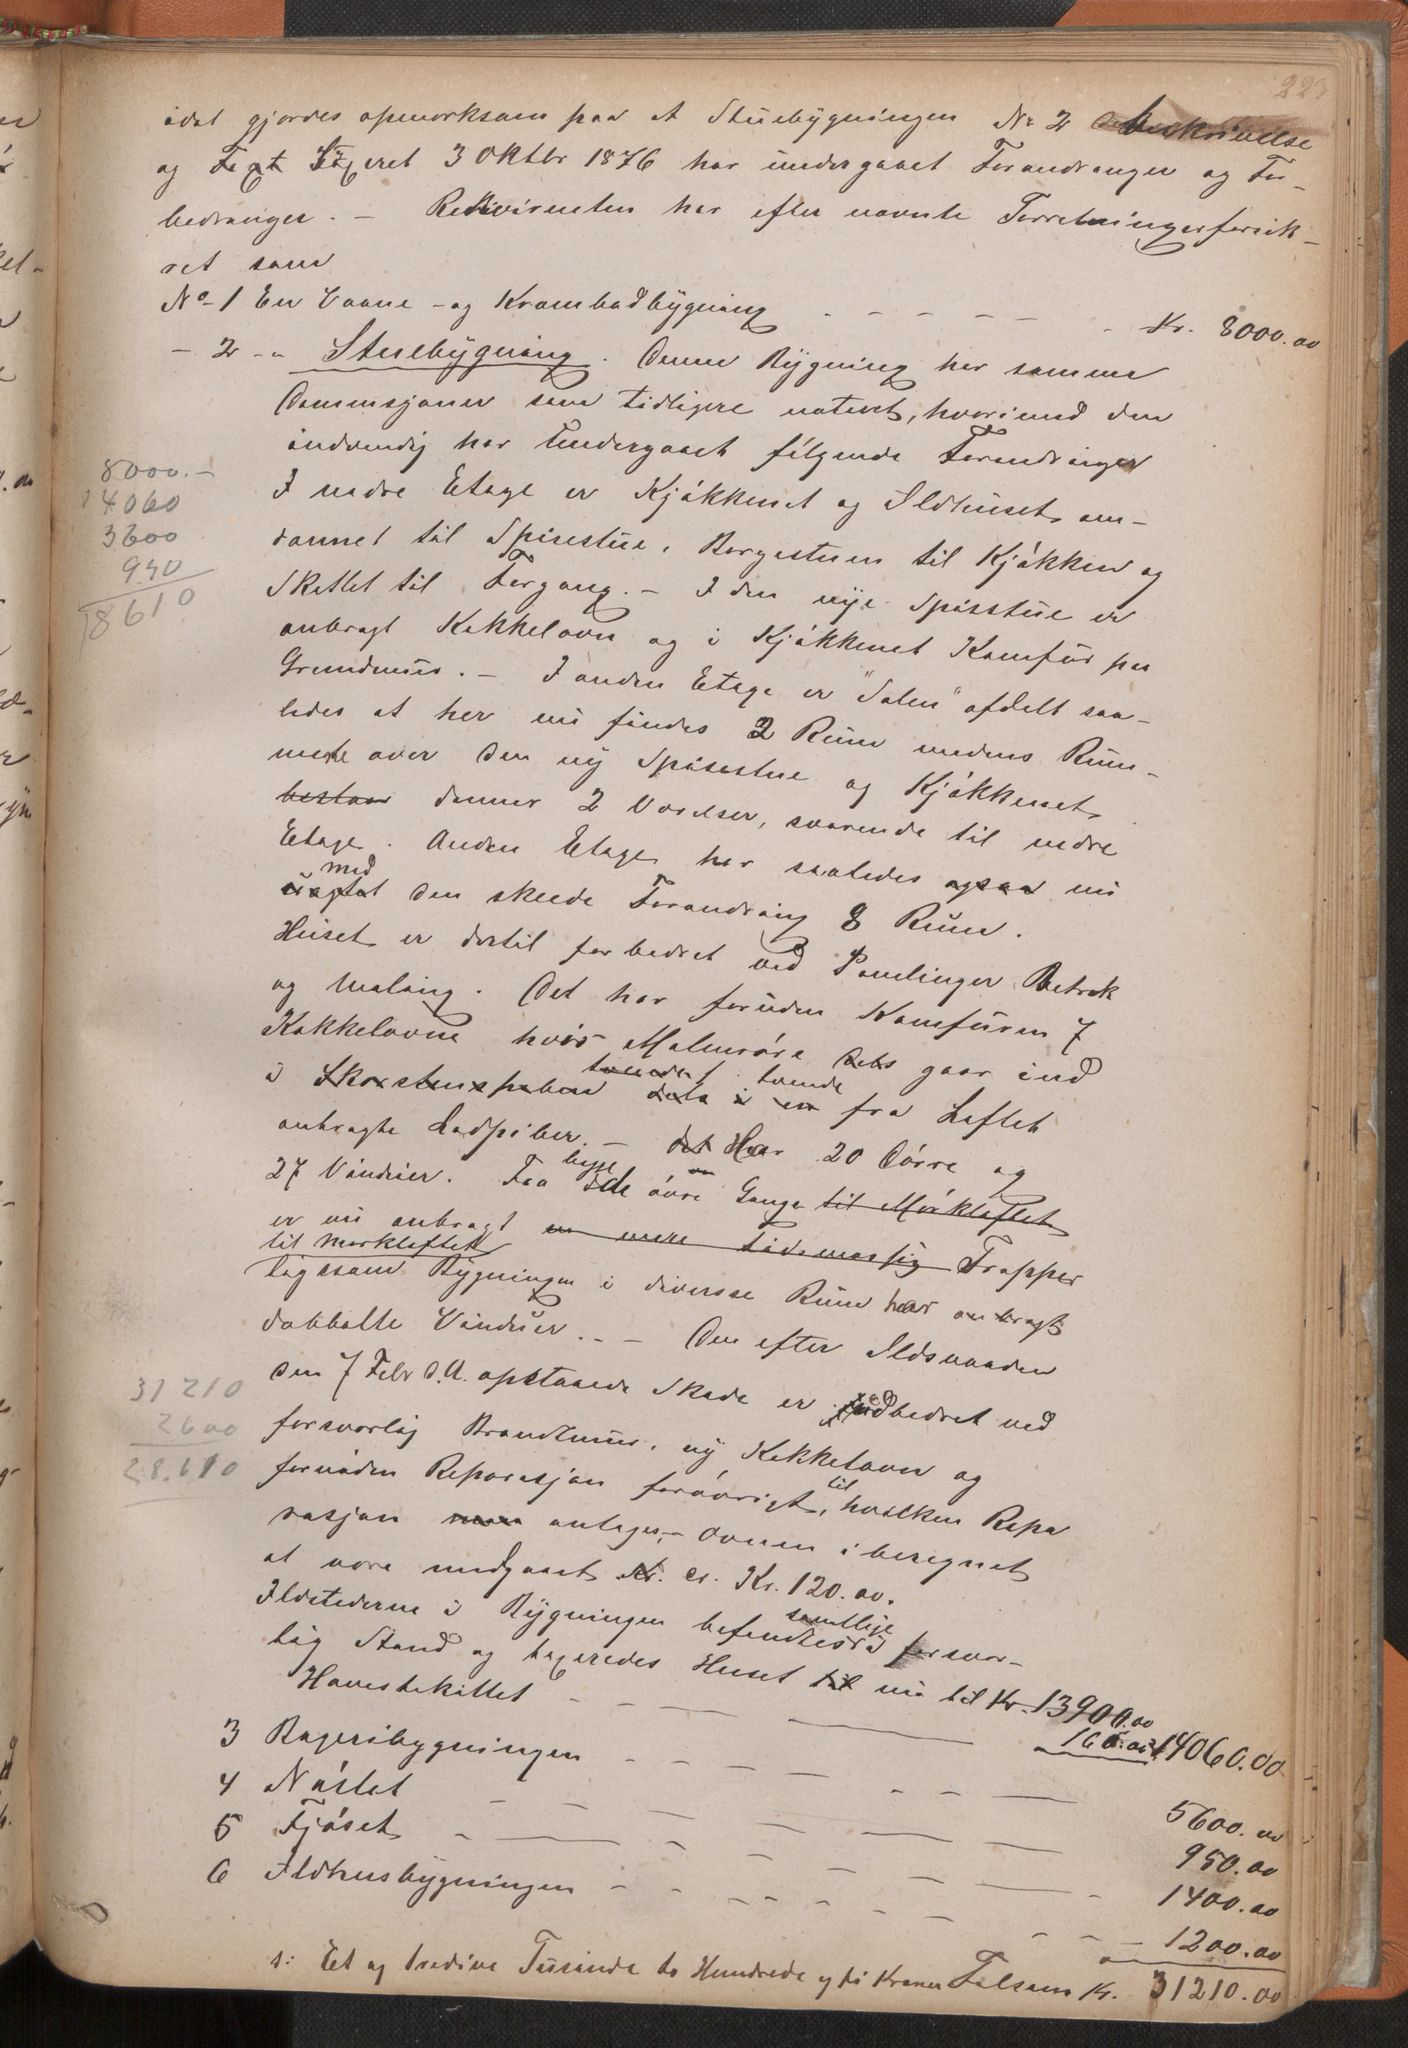 223
idet gjordes opmerksom paa at Stuebygningen No 2 Beskrivelse
og Taxt Taxeret 3 Oktbr 1876 har undergaaet Forandringer og For-
bedringer. – Rekvirenten har efter nævnte Forretninger forsik-
ret som
No 1 En Vaane- og Krambodbygning - - - - - - Kr. 8000.00
- 2 - " Stuebygning. Denne Bygning har samme
Demensjoner som tidligere noteret, hvorimod den
indvendig har undergaaet følgende Forandringer
I nedre Etage er Kjøkkenet og Ildhuset om-
dannet til Spisestue, Borgestuen til Kjøkken og
Skottet til Forgang. – I den nye Spisstue er
anbragt Kakkelovn og i Kjøkkenet Komfur paa
Grundmur. – I anden Etage er "Salen" afdelt saa-
ledes at her nu findes 2 Rum medens Rum-
mene over den ny Spisestue og Kjøkkenet
bestaar danner 2 Værelser, svarende til nedre
Etage. Anden Etage har saaledes ogsaa nu
med
den skeede Forandring 8 Rum.
Huset er dertil forbedret ved Panelinger Betræk
og Maling. Det har foruden Komfuren 7
Kakkelovne hvis Malmrøre dels gaar ind
i Skorstenspiben dels i en tvende fra Loftet
anbragte Ladpiber. – det Har 20 Dørre og
27 Vinduer. Fra begge de øvre Gange til Mørkloftet
er nu anbragt en mere tidsmæssig Trapper
til Mørkloftet
ligesom Bygningen i diverse Rum har anbragt
dobbelte Vinduer. – Den efter Ildsvaaden
den 7 Febr d.A. opstaaede Skade er udbedret ved
forsvarlig Brandmur, ny Kakkelovn og
fornøden Reparasjon forøvrigt, til hvilken Repa
rasjon antages, – Ovnen iberegnet
at være medgaaet Kr. cr. Kr. 120.00.
Ildstederne i Bygningen befandtes samtlige i forsvar-
lig Stand og taxeredes Huset til nu til Kr. 13900.00
Havestakittet - - - 160.00 14060.00
3 Bageribygningen - - - 5600.00
4 Nøstet - - - 950.00
5 Fjøset - - - 1400.00
6 Ildhusbygningen - - - 1200.00
s: Et og tredive Tusinde to Hundrede og ti Kroner Tilsam Kr. 31210.00
8000.-
14060
3600
950
18610
31210
2600
28.610